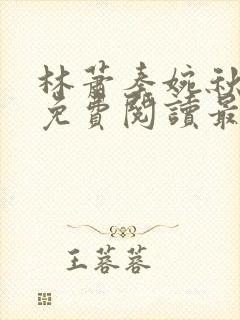 林蕭秦婉秋
免費閱讀最
王蓉蓉